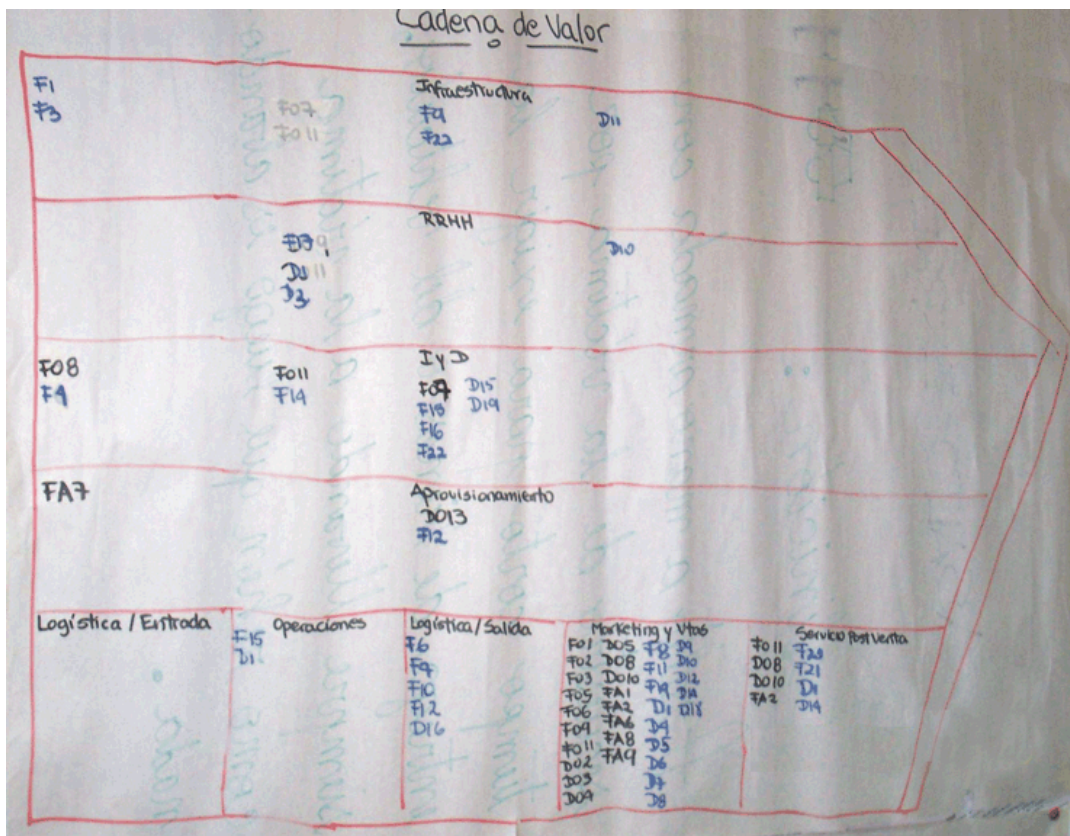 Cadena de Valor
Infraestructura
F1
F3
F07
F011
F9
F22
D11
RRHH
D3
D10
I y D
F08
F4
F011
F14
F07 D15
F13 D19
F16
F22
Aprovisionamiento
FA7
D013
F12
Logística / Entrada
Operaciones
F15
D1
Logística / Salida
F6
F9
F10
F12
D16
Marketing y Vtas
F01 D05 F8 D9
F02 D08 F11 D10
F03 D010 F19 D12
F05 FA1 D1 D14
F06 FA2 D4 D18
F09 FA6 D5
F011 FA8 D6
D02 FA9 D7
D03 D8
D04
Servicio Postventa
F011 F20
D08 F21
D010 D1
FA2 D14